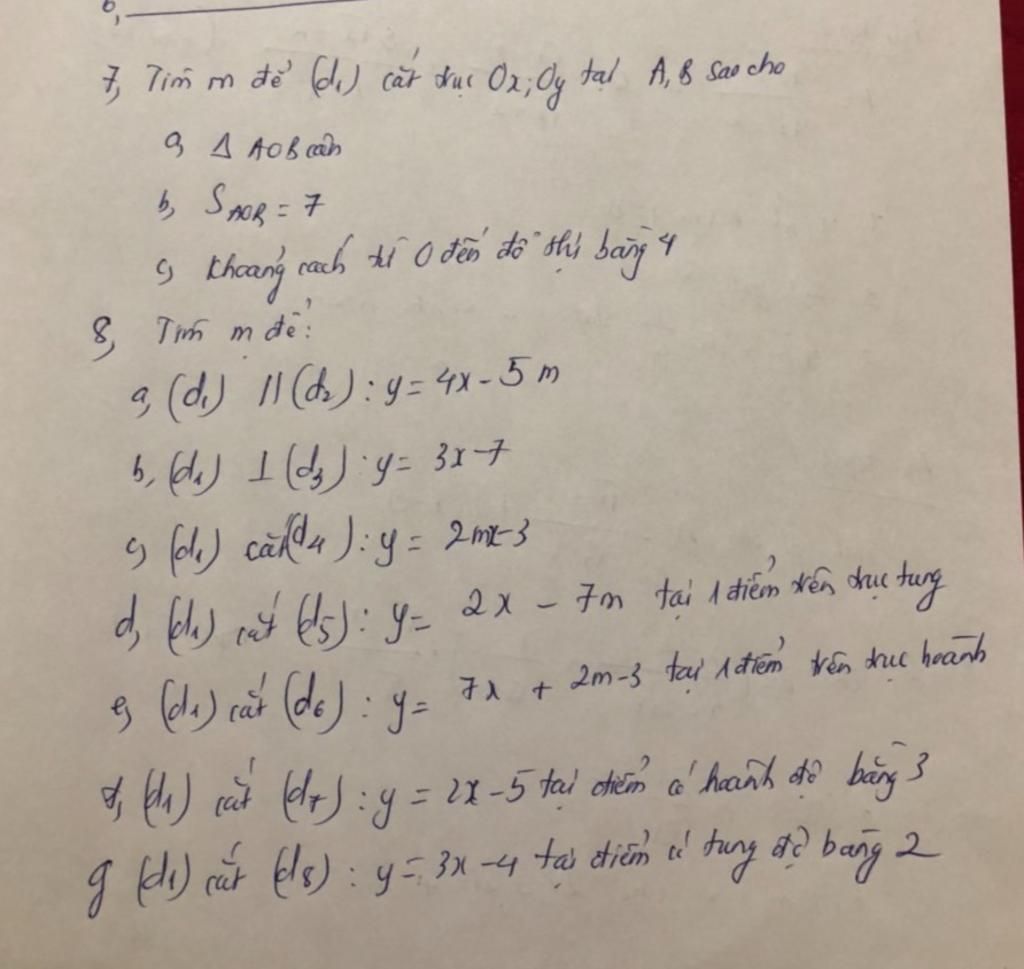 6,
7, Tìm m để (d₁) cắt trục Ox; Oy tại A, B sao cho
a, Δ AOB cân
b, S_AOB = 7
c, Khoảng cách từ O đến đồ thị bằng 4
8, Tìm m để:
a, (d₁) // (d₂) : y = 4x - 5m
b, (d₁) ⊥ (d₃) : y = 3x - 7
c, (d₁) cắt (d₄) : y = 2mx - 3
d, (d₁) cắt (d₅) : y = 2x - 7m tại 1 điểm trên trục tung
e, (d₁) cắt (d₆) : y = 7x + 2m - 3 tại 1 điểm trên trục hoành
f, (d₁) cắt (d₇) : y = 2x - 5 tại điểm có hoành độ bằng 3
g (d₁) cắt (d₈) : y = 3x - 4 tại điểm có tung độ bằng 2